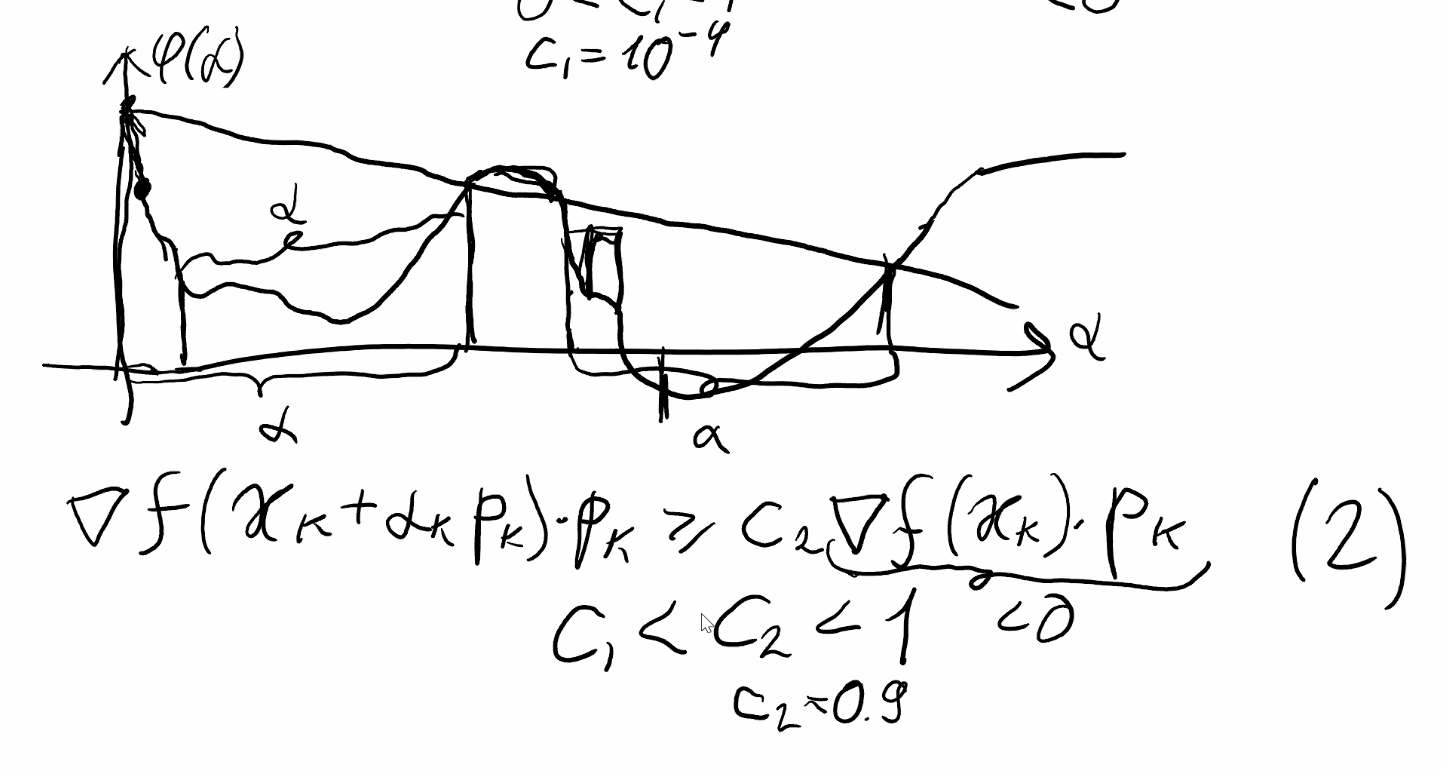 C₁ = 10⁻⁴
φ(α)
α
α
α
α
∇f(xₖ + αₖpₖ)·pₖ ≥ C₂∇f(xₖ)·pₖ (2)
C₁ < C₂ < 1 <0
C₂ ≈ 0.9